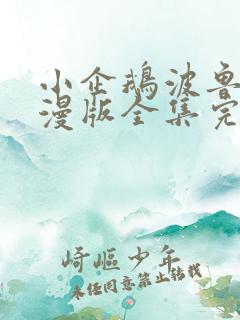 小企鹅波鲁
漫版全集完
崎岖少年
未经同意禁止转载